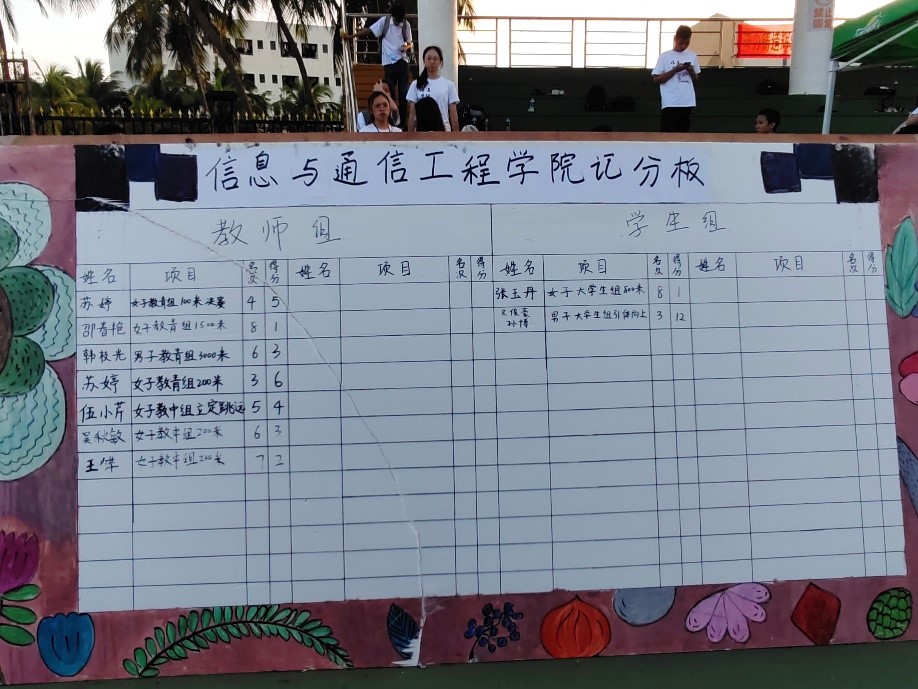 信息与通信工程学院记分板
教师组 学生组
姓名 项目 名次 得分 姓名 项目 名次 得分 姓名 项目 名次 得分 姓名 项目 名次 得分
苏婷 女子教青组100米决赛 4 5 张玉丹 女子大学生组800米 8 1
邵春艳 女子教青组1500米 8 1 孙博 男子大学生组引体向上 3 12
韩枝光 男子教青组3000米 6 3
苏婷 女子教青组200米 3 6
伍小芹 女子教中组立定跳远 5 4
吴秋敏 女子教中组200米 6 3
王 女子教中组200米 7 2